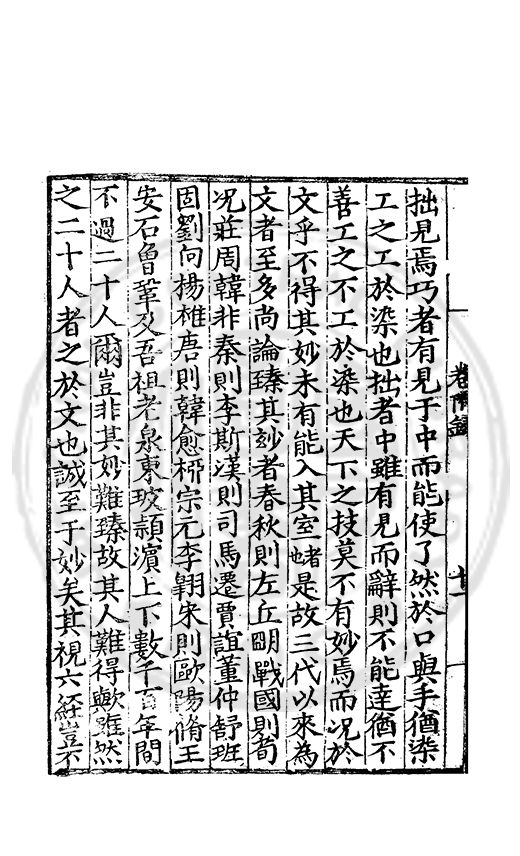 拙見焉巧者有見于中而能使了然於口與手猶染
工之工於染也拙者中雖有見而辭則不能達猶不
善工之不工於染也天下之技莫不有妙焉而况於
文乎不得其妙未有能入其室者是故三代以來為
文者至多尚論臻其妙者春秋則左丘明戰國則荀
况莊周韓非秦則李斯漢則司馬遷賈誼董仲舒班
固劉向揚雄唐則韓愈柳宗元李翱宋則歐陽脩王
安石曾鞏及吾祖老泉東坡潁濱上下數千百年間
不過二十人爾豈非其妙難臻故其人難得歟雖然
之二十人者之於文也誠至于妙矣其視六經豈不
十一